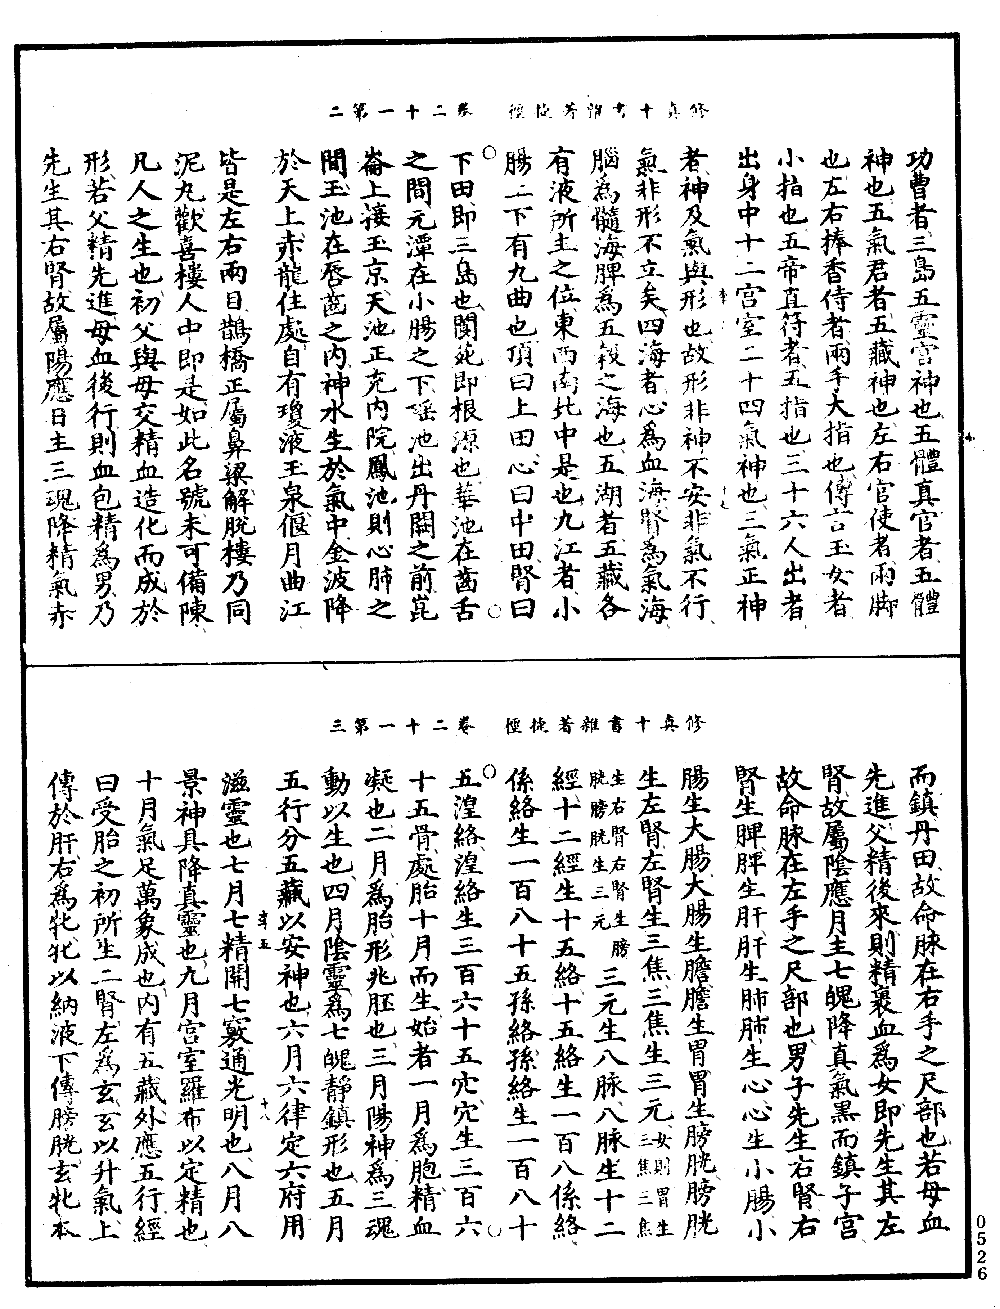 修真十書雜著捷徑　卷二十一第二
功曹者三島五靈宮神也五體真官者五體
神也五氣君者五藏神也左右官使者兩脚
也左右捧香侍者兩手大指也傳言玉女者
小指也五帝直符者五指也三十六人出者
出身中十二宮室二十四氣神也三氣正神
者神及氣與形也故形非神不安非氣不行
氣非形不立矣四海者心為血海腎為氣海
腦為髓海脾為五穀之海也五湖者五藏各
有液所主之位東西南北中是也九江者小
腸二下有九曲也頂曰上田心曰中田腎曰
下田即三島也閬苑即根源也華池在齒舌
之間元潭在小腸之下瑤池出丹闕之前崑
崙上接玉京天池正充內院鳳池則心肺之
間玉池在唇齒之內神水生於氣中金波降
於天上赤龍住處自有瓊液玉泉偃月曲江
皆是左右兩目鵲橋正屬鼻梁解脫樓乃同
泥丸歡喜樓人中即是如此名號未可備陳
凡人之生也初父與母交精血造化而成於
形若父精先進母血後行則血包精為男乃
先生其右腎故屬陽應日主三魂降精氣赤
修真十書雜著捷徑　卷二十一第三
而鎮丹田故命脉在右手之尺部也若母血
先進父精後來則精裹血為女即先生其左
腎故屬陰應月主七魄降真氣黑而鎮子宮
故命脉在左手之尺部也男子先生右腎右
腎生脾脾生肝肝生肺肺生心心生小腸小
腸生大腸大腸生膽膽生胃胃生膀胱膀胱
生左腎左腎生三焦三焦生三元女則胃生三焦三焦
生右腎右腎生膀胱膀胱生三元三元生八脉八脉生十二
經十二經生十五絡十五絡生一百八係絡
係絡生一百八十五孫絡孫絡生一百八十
五湟絡湟絡生三百六十五穴穴生三百六
十五骨處胎十月而生始者一月為胞精血
凝也二月為胎形兆胚也三月陽神為三魂
動以生也四月陰靈為七魄靜鎮形也五月
五行分五藏以安神也六月六律定六府用
滋靈也七月七精開七竅通光明也八月八
景神具降真靈也九月宮室羅布以定精也
十月氣足萬象成也內有五藏外應五行經
曰受胎之初所生二腎左為玄玄以升氣上
傳於肝右為牝牝以納液下傳膀胱玄牝本
0526